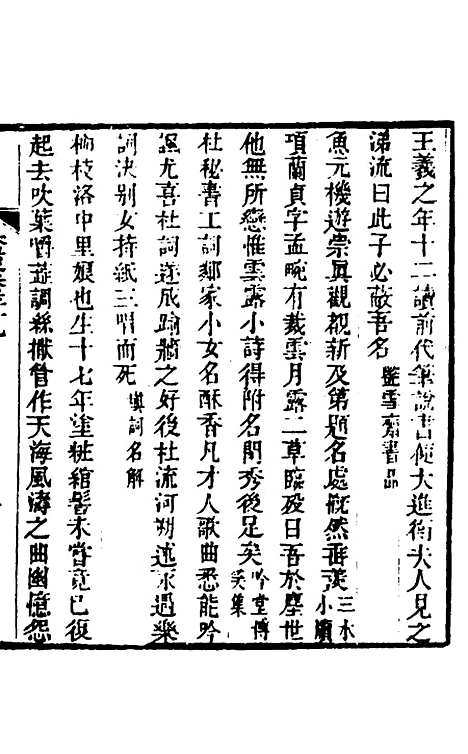 王羲之年十二讀前代筆說書便大進衛夫人見之
涕流曰此子必蔽吾名 墨雪齋書品
魚元機遊崇眞觀覩新及第題名處慨然垂羨 三水小牘
項蘭貞字孟畹有裁雲月露二草臨歿曰吾於塵世
他無所戀惟雲露小詩得附名閨秀後足矣 吟堂博笑集
杜秘書工詞鄰家小女名酥香凡才人歌曲悉能吟
諷尤喜杜詞遂成踰牆之好後杜流河朔述永遇樂
詞决别女持紙三唱而死 填詞名解
柳枝洛中里娘也生十七年塗粧綰髻未嘗竟已復
起去吹葉嚼蕊調絲擫管作天海風濤之曲幽憶怨